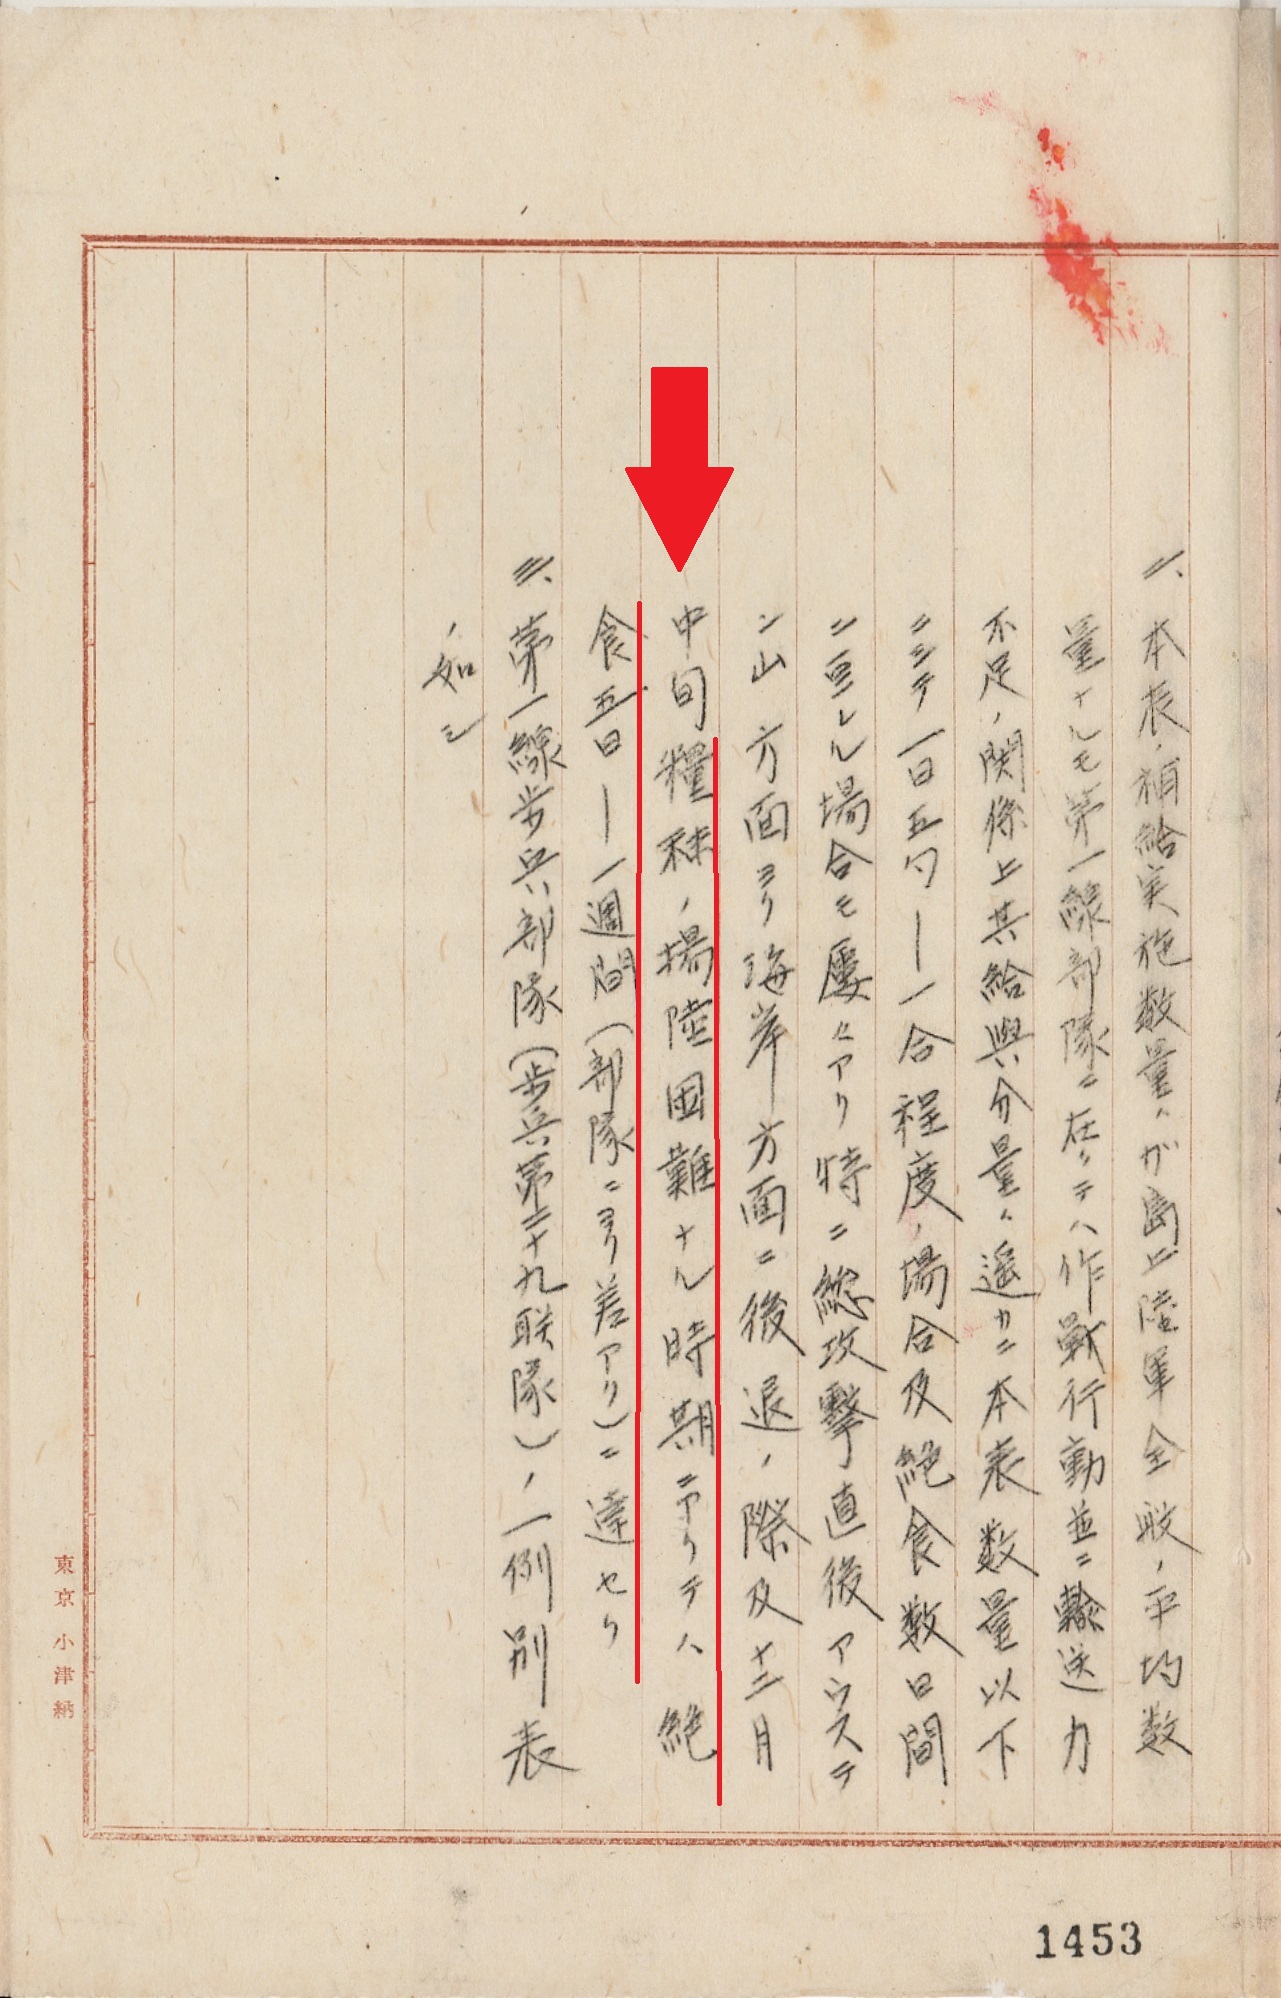 二、本表ノ補給実施数量ハガ島上陸軍全般ノ平均数
量ナルモ第一線部隊ニ在リテハ作戦行動並ニ輸送力
不足ノ関係上其給與分量ハ遥カニ本表数量以下
ニシテ一日五勺―一合程度ノ場合及絶食数日間
ニ亘レル場合モ屡々アリ特ニ総攻撃直後アウステ
ン山方面ヨリ海岸方面ニ後退ノ際及十二月
中旬糧秣ノ揚陸困難ナル時期ニアリテハ絶
食五日―一週間(部隊ニヨリ差アリ)ニ達セリ
三、第一線歩兵部隊(歩兵第二十九联隊)ノ一例別表
ノ如シ
東京小津納
1453